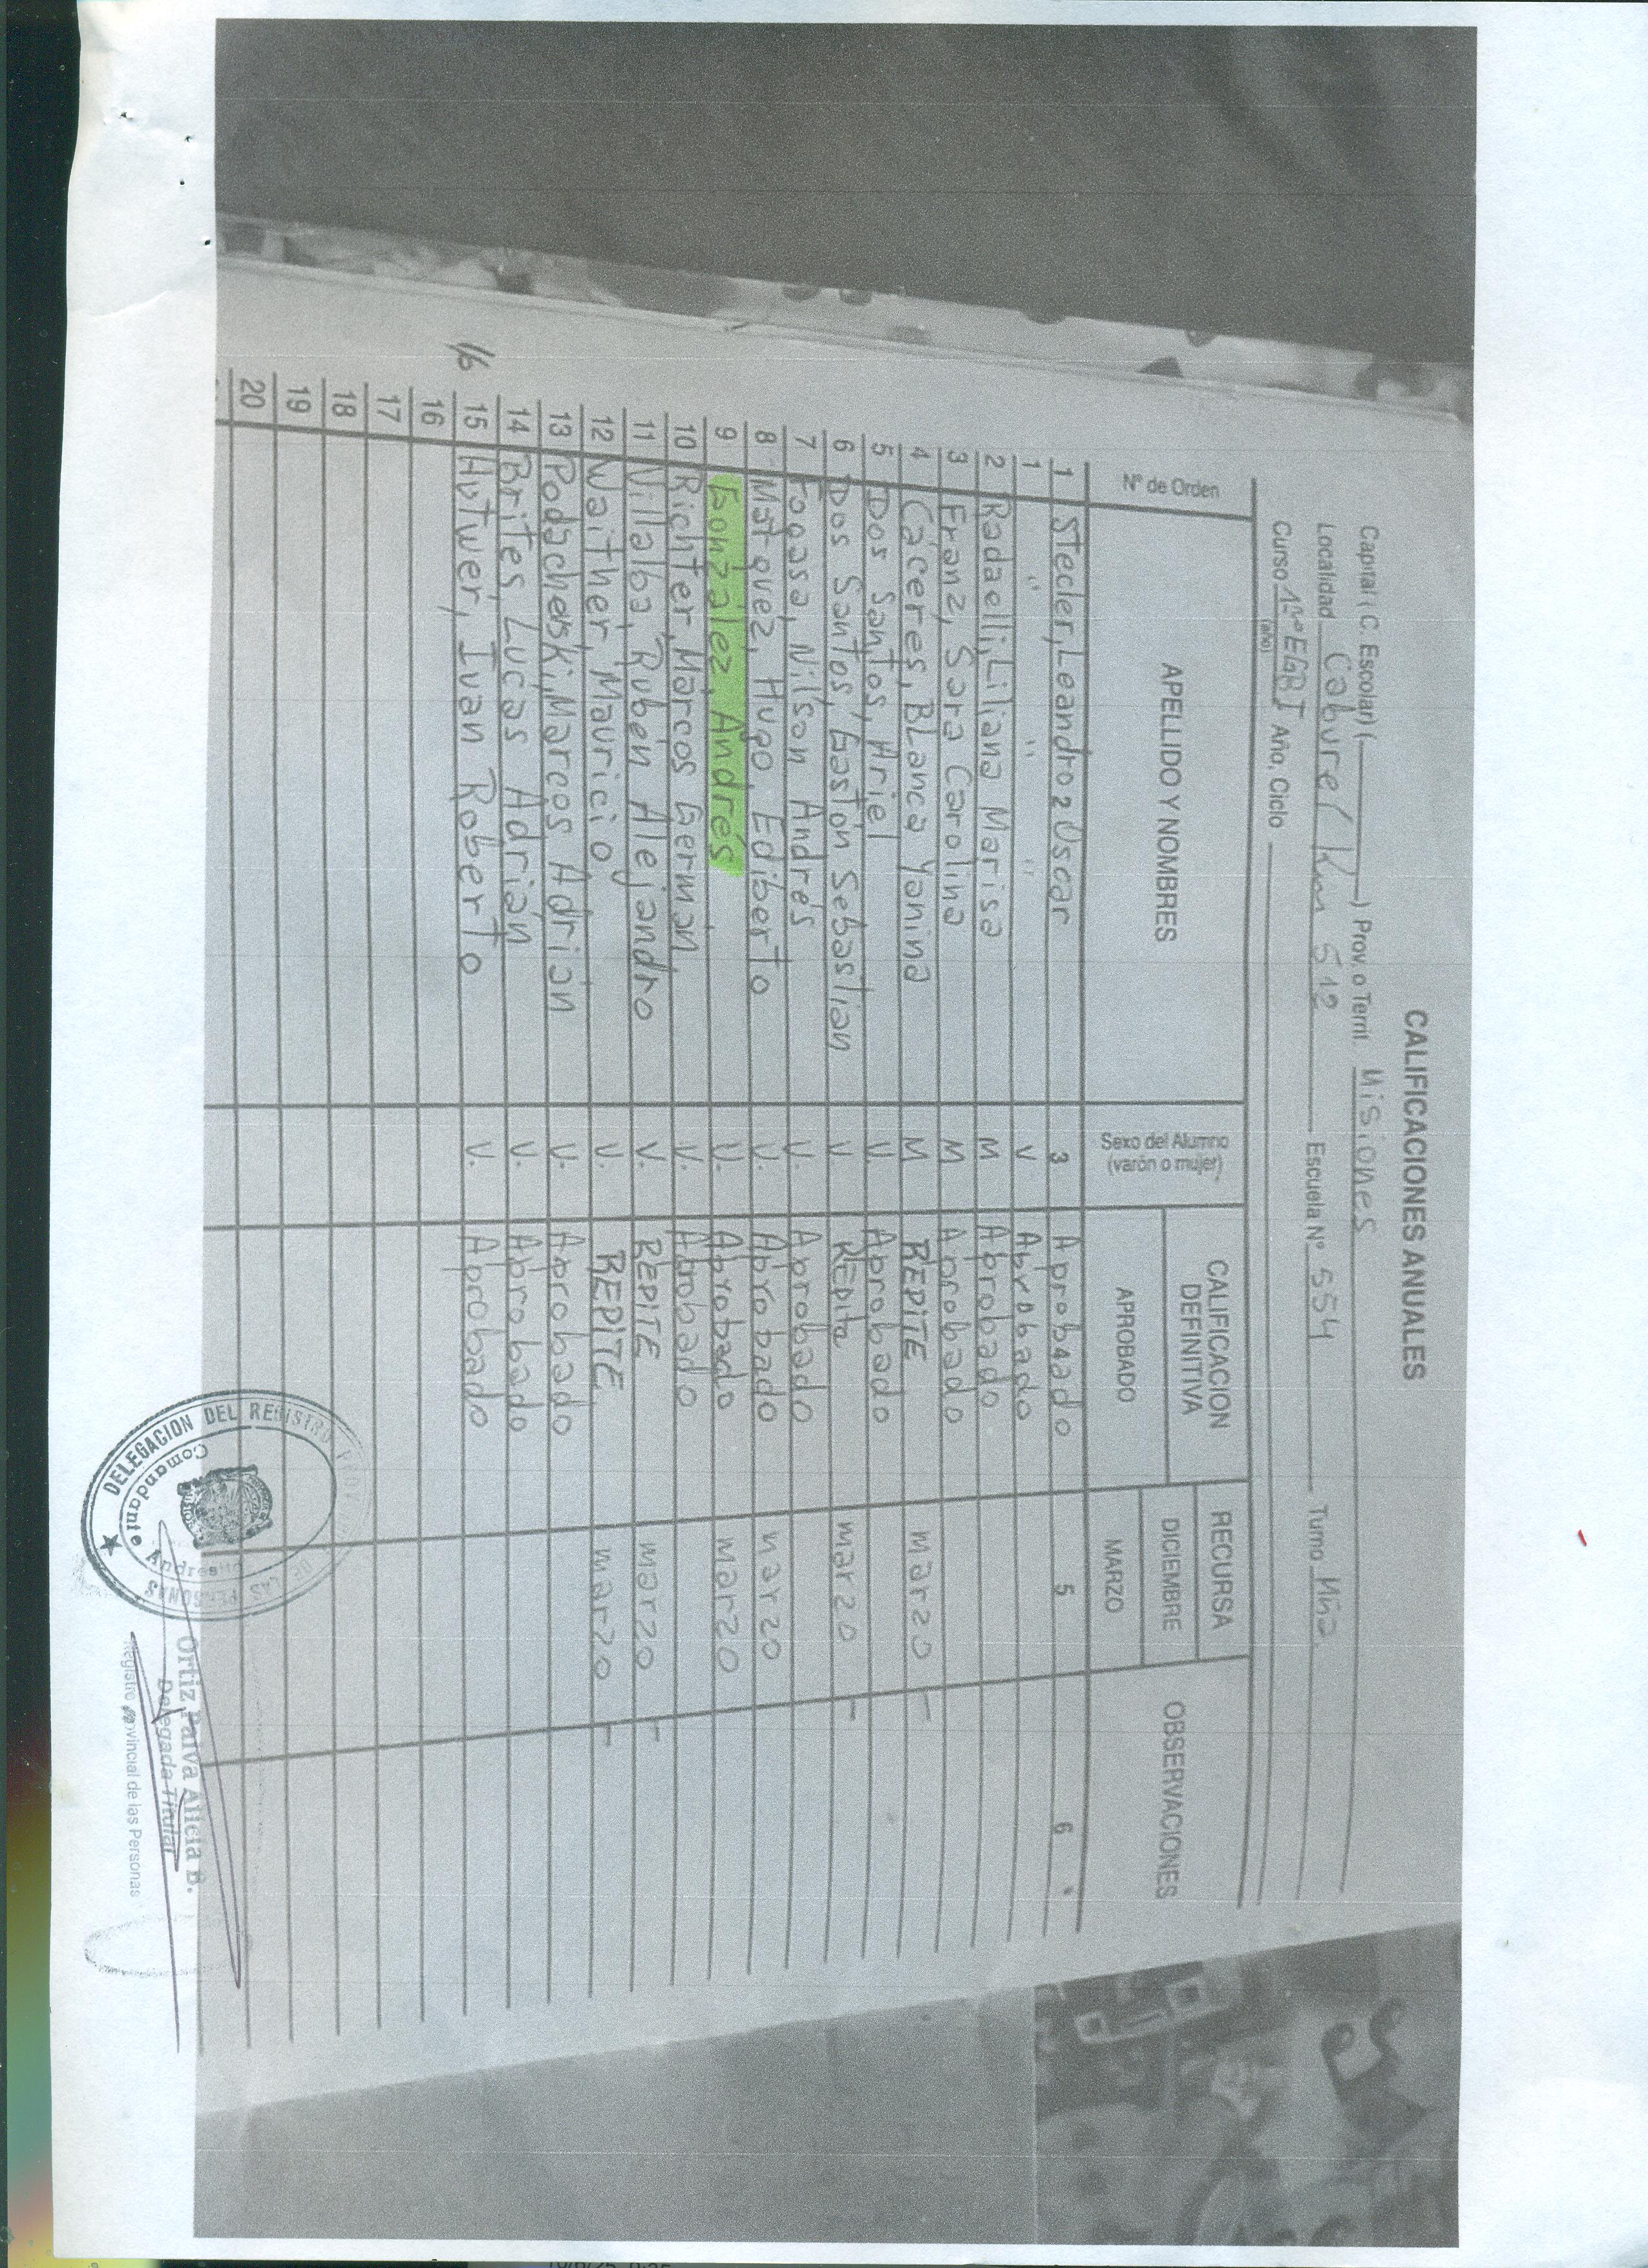 CALIFICACIONES ANUALES
Capital (C. Escolar) ( ) Prov. o Territ. Misiones
Localidad Caburei / Km 512 Escuela Nº 554 Turno Mña.
Curso 1º EGB I Año, Ciclo
(año)
Nº de Orden APELLIDO Y NOMBRES Sexo del Alumno (varón o mujer) CALIFICACION DEFINITIVA APROBADO RECURSA DICIEMBRE MARZO OBSERVACIONES
1 Stecler, Leandro 2 Oscar 3 Aprob4ado 5 6
1 " " " V Aprobado
2 Radaelli, Liliana Marisa M Aprobado
3 Franz, Sara Carolina M Aprobado
4 Cáceres, Blanca Yanina M REPITE marzo -
5 Dos Santos, Ariel V. Aprobado
6 Dos Santos, Gastón Sebastian V. REPite marzo -
7 Fogasa, Nilson Andrés V. Aprobado
8 Marquez, Hugo Ediberto V. Aprobado marzo
9 González, Andrés V. Aprobado marzo
10 Richter, Marcos German V. Aprobado
11 Villalba, Rubén Alejandro V. REPITE marzo -
12 Waither, Mauricio V. REPITE marzo -
13 Podacheski, Marcos Adrian V. Aprobado
14 Brites, Lucas Adrián V. Aprobado
15 Hutwer, Ivan Roberto V. Aprobado
16
17
18
19
20
DELEGACION DEL REGISTRO DE LAS PERSONAS
Comandante Andresito
Ortiz Paiva Alicia B.
Delegada Titular
Registro Provincial de las Personas